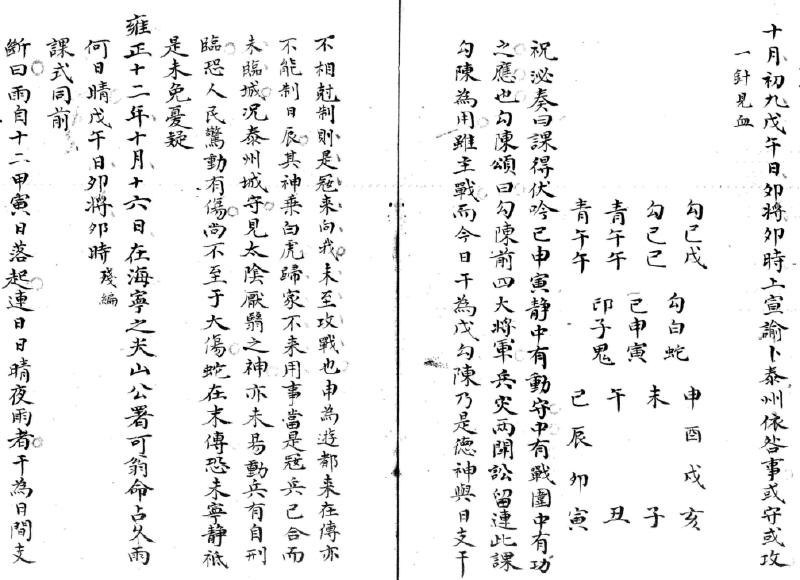 十月初九戊午日夘將夘時上宣諭卜泰州依咎事或守或攻
一針見血
勾巳戊
勾巳巳
青午午
青午午
勾白蛇
巳申寅
印子鬼
申酉戌亥
未　　子
午　　丑
巳辰夘寅
祝泌奏曰課得伏吟巳申寅静中有動守中有戰圍中有功
之應也勾陳頌曰勾陳前四大將軍兵灾两閗訟留連此課
勾陳為用雖主戰而今日干為戊勾陳乃是德神與日支干
不相尅制則是冦来向我未至攻戰也申為遊都来在傳亦
不能制日辰其神乗白虎歸家不来用事當是冦兵已合而
未臨城况泰州城守見太陰厭翳之神亦未易動兵有自刑
臨恐人民驚動有傷尚不至于大傷蛇在末傳恐未寧静祗
是未免憂疑
雍正十二年十月十六日在海寧之尖山公署可翁命占久雨
何日晴戊午日夘將夘時 殘編
課式同前
斷曰雨自十二甲寅日落起連日日晴夜雨者干為日間支